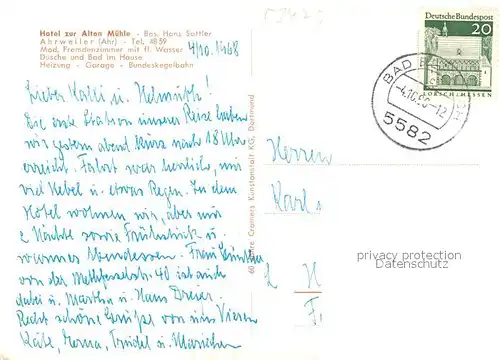 Hotel zur Alten Mühle - Bes. Hans Sattler
Ahrweiler (Ahr) - Tel. 4859
Mod. Fremdenzimmer mit fl. Wasser
Dusche und Bad im Hause
Heizung - Garage - Bundeskegelbahn
4/10. 1968
Lieber Karli u. Helmuth!
Die erste Station unserer Reise haben
wir gestern abend kurz nach 18 Uhr
erreicht. Fahrt war herrlich, nur
viel Nebel u. etwas Regen. In dem
Hotel wohnen wir, aber nur
2 Nächte sowie Frühstück u.
warmes Abendessen. Frau
von der 40 ist auch
dabei u. Martha u. Hans Dreier.
Recht schöne Grüße von uns Vieren
Käte, Erna, Trudel u. Mariechen
60 Jahre Cramers Kunstanstalt KG, Dortmund
DEUTSCHE BUNDESPOST
20
LORSCH/HESSEN
BAD
-4.10.68-12
5582
Herren
Karl
privacy protection
Datenschutz